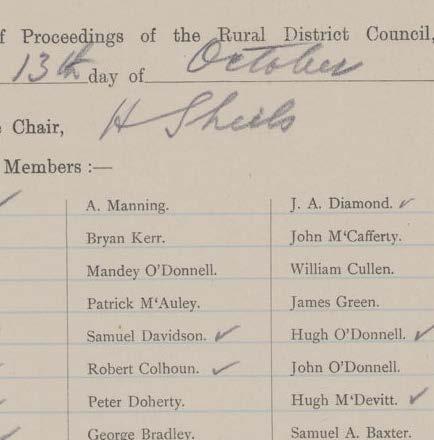 f Proceedings of the Rural District Council,
13th day of October
Chair, H Sheils
Members :—
A. Manning. J. A. Diamond. ✓
Bryan Kerr. John M‘Cafferty.
Mandey O’Donnell. William Cullen.
Patrick M‘Auley. James Green.
Samuel Davidson. ✓ Hugh O’Donnell. ✓
Robert Colhoun. ✓ John O’Donnell.
Peter Doherty. Hugh M‘Devitt. ✓
George Bradley. Samuel A. Baxter.